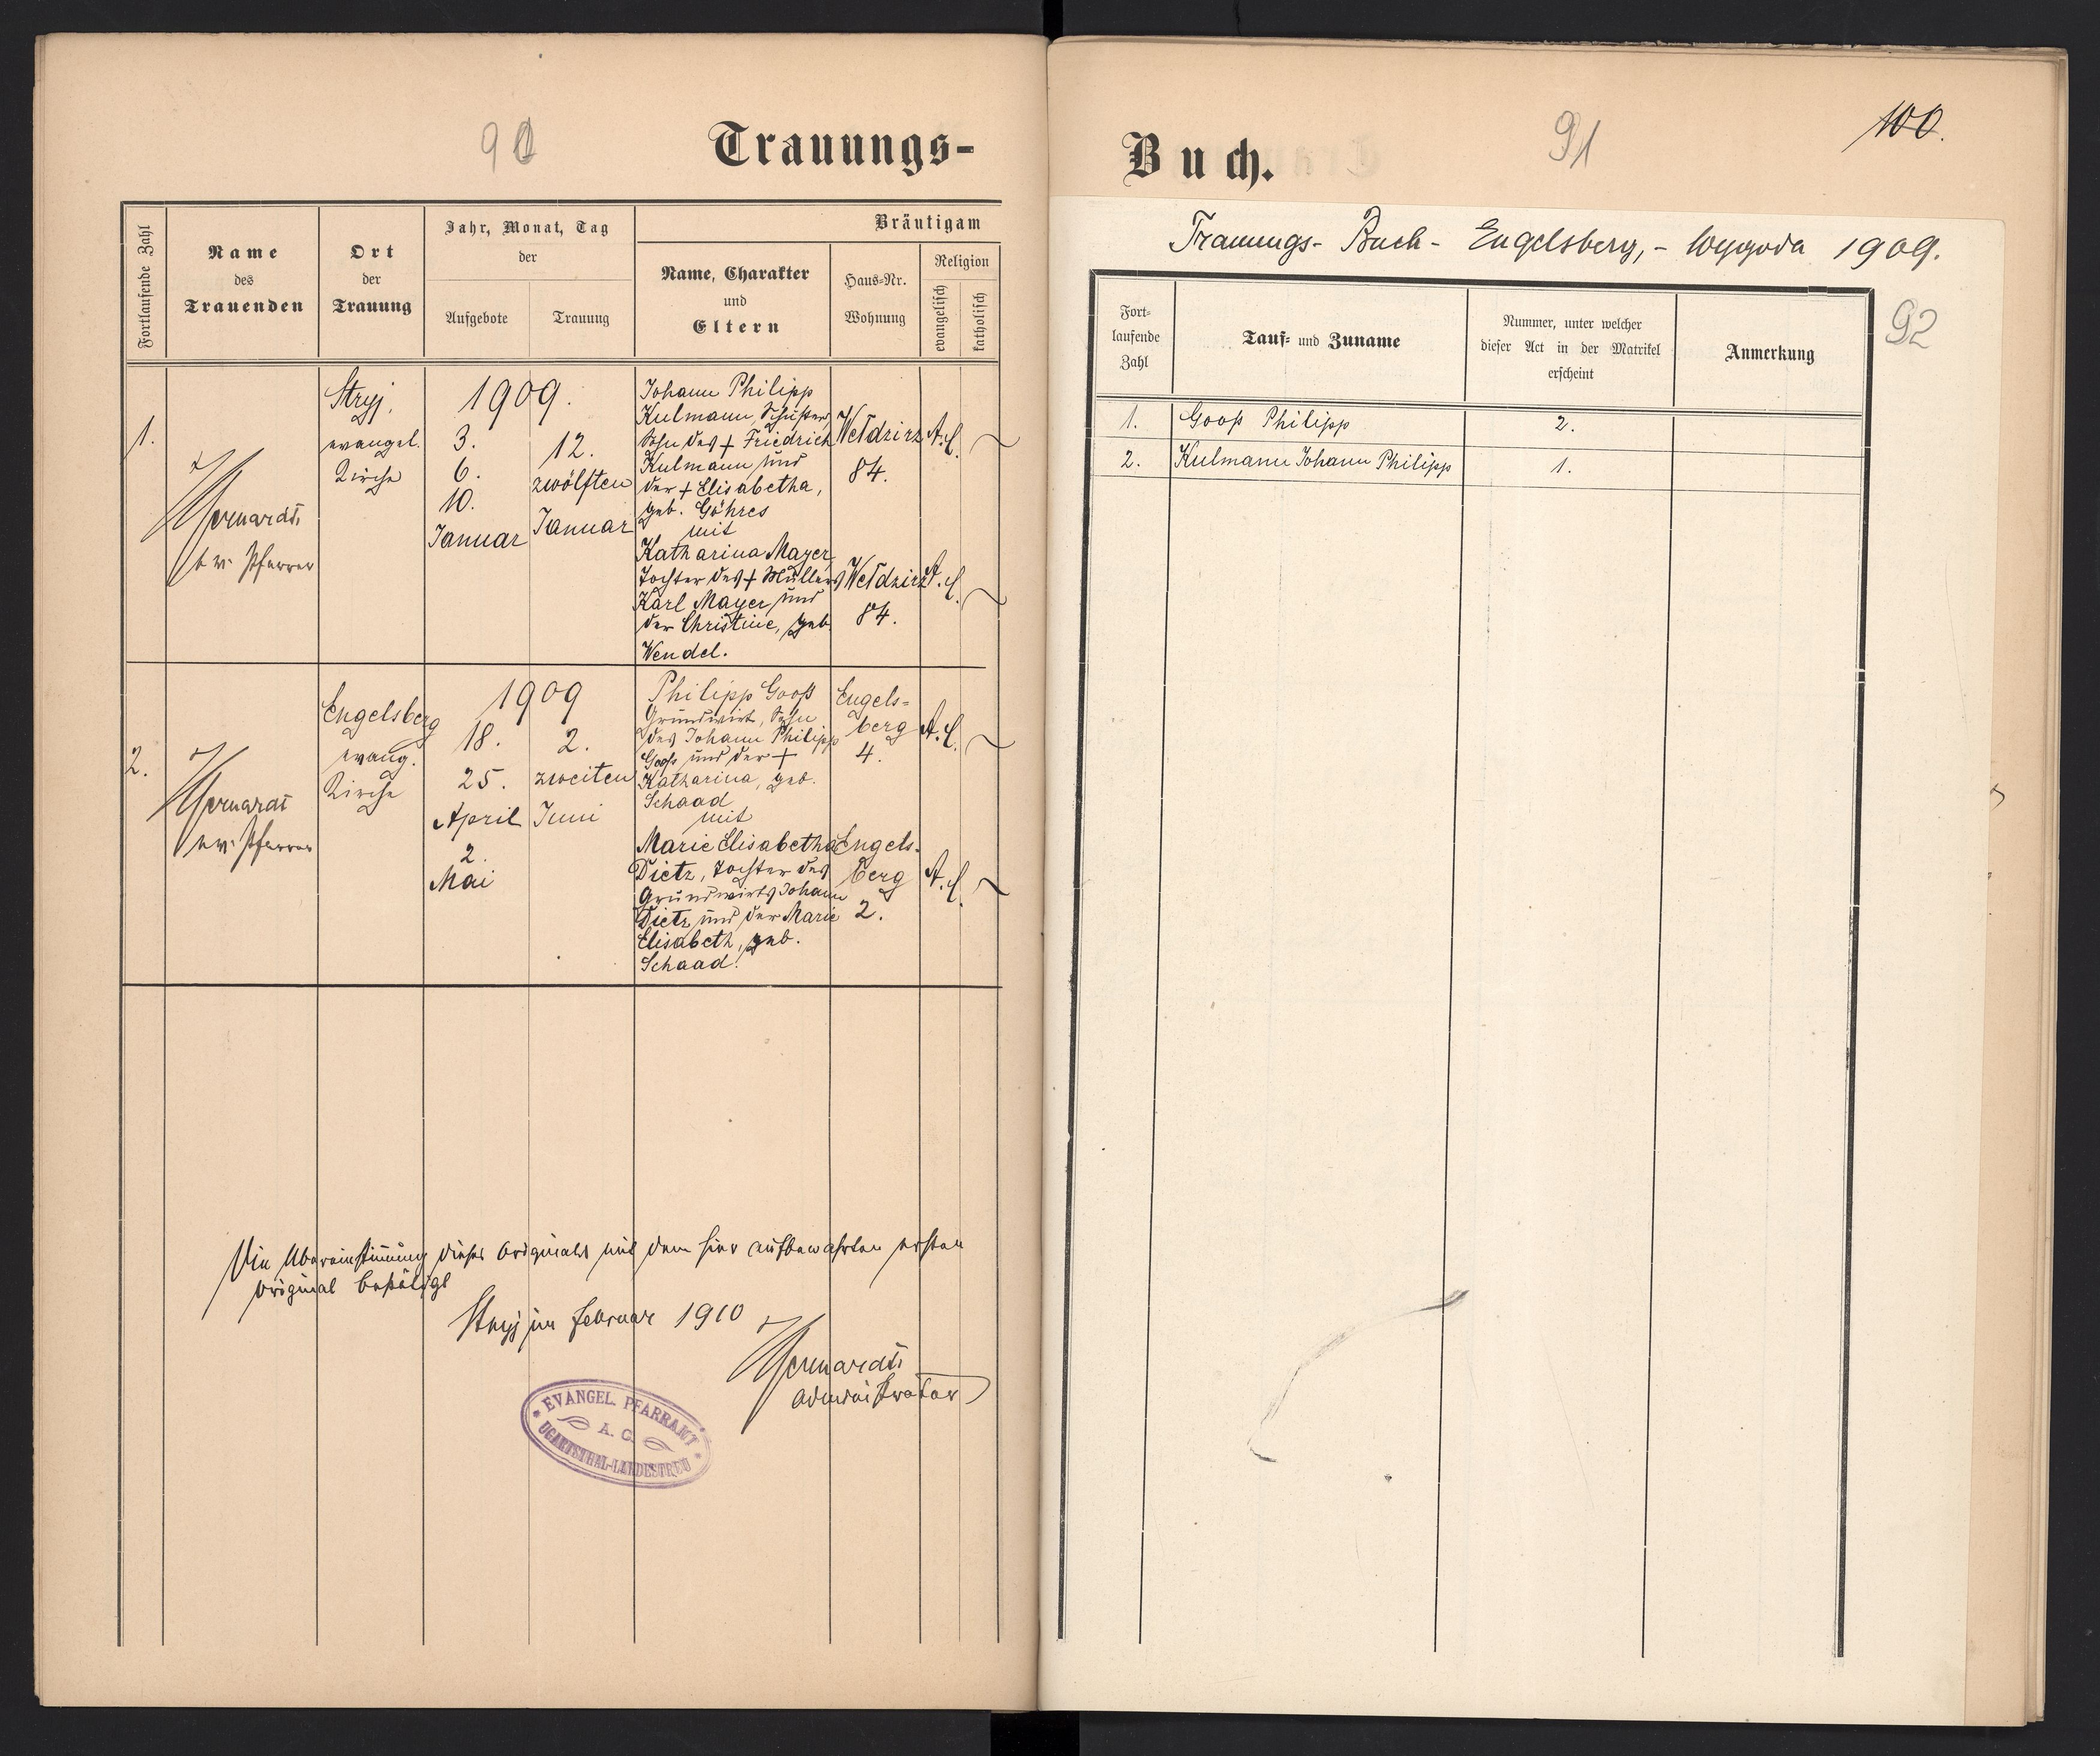 90
Trauungs-
Fortlaufende Zahl
Name
des
Trauenden
Ort
der
Trauung
Jahr, Monat, Tag
der
Aufgebote
Trauung
Bräutigam
Name, Charakter
und
Eltern
Haus-Nr.
Wohnung
Religion
evangelisch
katholisch
1.
ev. Pfarrer
Stryj,
evangel.
Kirche
1909.
3.
6.
10.
Januar
12.
zwölften
Januar
Johann Philipp
Kulmann, Schuster,
Sohn des + Friedrich
Kulmann und
der + Elisabetha,
geb. Göhres
mit
Katharina Mayer,
Tochter des + Müllers
Karl Mayer und
der Christine, geb.
Wendel.
Wełdzirz
84.
A.C.
Wełdzirz
84.
A.C.
2.
ev. Pfarrer
Engelsberg
evang.
Kirche
1909
18.
25.
April
2.
Mai
2.
zweiten
Juni
Philipp Gooß
Grundwirt, Sohn
des Johann Philipp
Gooß und der +
Katharina, geb.
Schaad
mit
Marie Elisabetha
Dietz, Tochter des
Grundwirts Johann
Dietz und der Marie
Elisabeth, geb.
Schaad.
Engels-
berg
4.
A.C.
Engels-
berg
2.
A.C.
Die Übereinstimmung dieses Originals mit dem hier aufbewahrten ersten
Original bestätigt
Stryj im Februar 1910
Administrator
EVANGEL. PFARRAMT
A. C.
UGARTSTHAL-LANDESTREU
Buch.
91
100.
Trauungs- Buch- Engelsberg, - Wygoda 1909.
92
Fort-
laufende
Zahl
Tauf- und Zuname
Nummer, unter welcher
dieser Act in der Matrikel
erscheint
Anmerkung
1. Gooß Philipp 2.
2. Kulmann Johann Philipp 1.